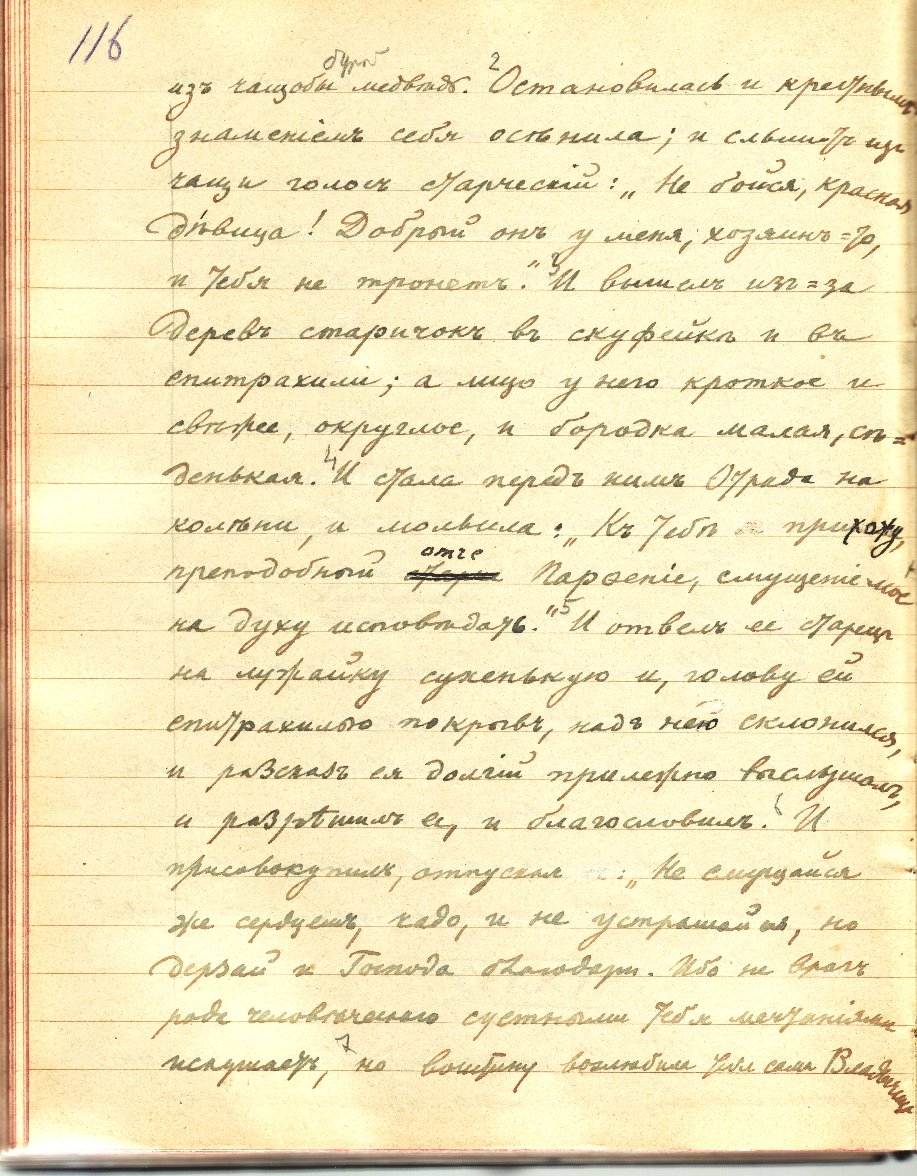 116
бурый 2
изъ чащобы медвѣдь. Остановилась и крестнымъ
знаменіемъ себя осѣнила; и слышитъ изъ
чащи голосъ старческій: „Не бойся, красная
дѣвица! Добрый онъ у меня, хозяинъ=то,
и тебя не тронетъ." 3 И вышелъ изъ=за
деревъ старичокъ въ скуфейкѣ и въ
епитрахили; а лицо у него кроткое и
свѣжее, округлое, и бородка малая, сѣ=
денькая. 4 И стала передъ нимъ Отрада на
колѣни, и молвила: „Къ тебѣ прихожу,
отче
преподобный Парѳеніе, смущеніе мое
на духу исповѣдать." 5 И отвелъ ее старецъ
на лужайку сухенькую и, голову ей
епитрахилью покрывъ, надъ нею склонился,
и разсказъ ея долгій прилежно выслушалъ,
и разрѣшилъ ее, и благословилъ. 6 И
присовокупилъ, отпуская: „Не смущайся
же сердцемъ, чадо, и не устрашайся, но
дерзай и Господа благодари. Ибо не врагъ
рода человѣческаго суетными тебя мечтаніями
искушаетъ, 7 но воистину возлюбилъ тебя самъ Владычицы